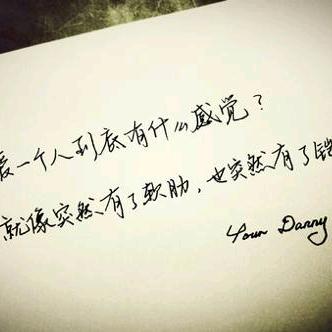 爱一个人到底有什么感觉？
就像突然有了软肋，也突然有了铠
Your Danny